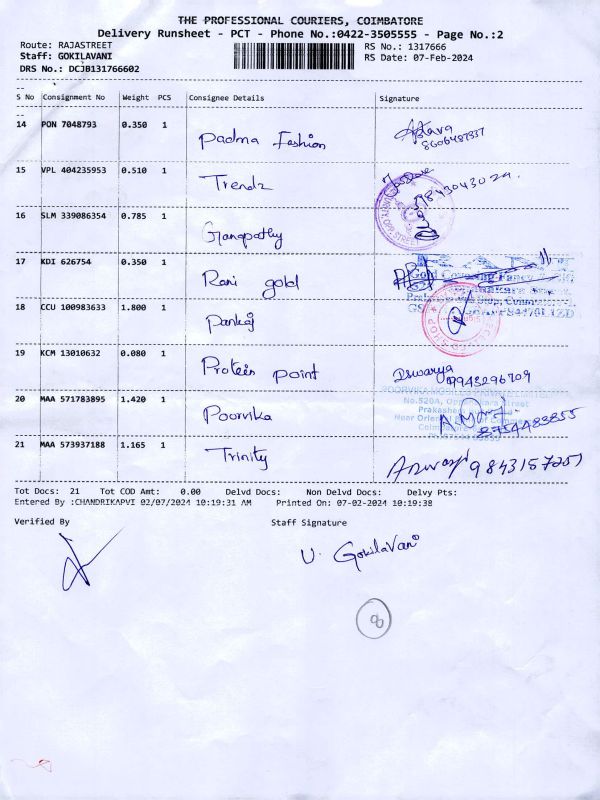 THE PROFESSIONAL COURIERS, COIMBATORE
Delivery Runsheet - PCT - Phone No.:0422-3505555 - Page No.:2
Route: RAJASTREET
RS No.: 1317666
Staff: GOKILAVANI
RS Date: 07-Feb-2024
DRS No.: DCJB131766602
S No Consignment No Weight PCS Consignee Details Signature
14 PON 7048793 0.350 1 Padma Fashion
15 VPL 404235953 0.510 1 Trendz
16 SLM 339086354 0.785 1 Ganapathy
17 KDI 626754 0.350 1 Rani gold
18 CCU 100983633 1.800 1 Pankaj
19 KCM 13010632 0.080 1 Protein point Iswarya 9943296709
20 MAA 571783895 1.420 1 Poorvika 8754483855
21 MAA 573937188 1.165 1 Trinity
Tot Docs: 21 Tot COD Amt: 0.00 Delvd Docs: Non Delvd Docs: Delvy Pts:
Entered By :CHANDRIKAPVI 02/07/2024 10:19:31 AM Printed On: 07-02-2024 10:19:38
Verified By Staff Signature
U. Gokilavani
8